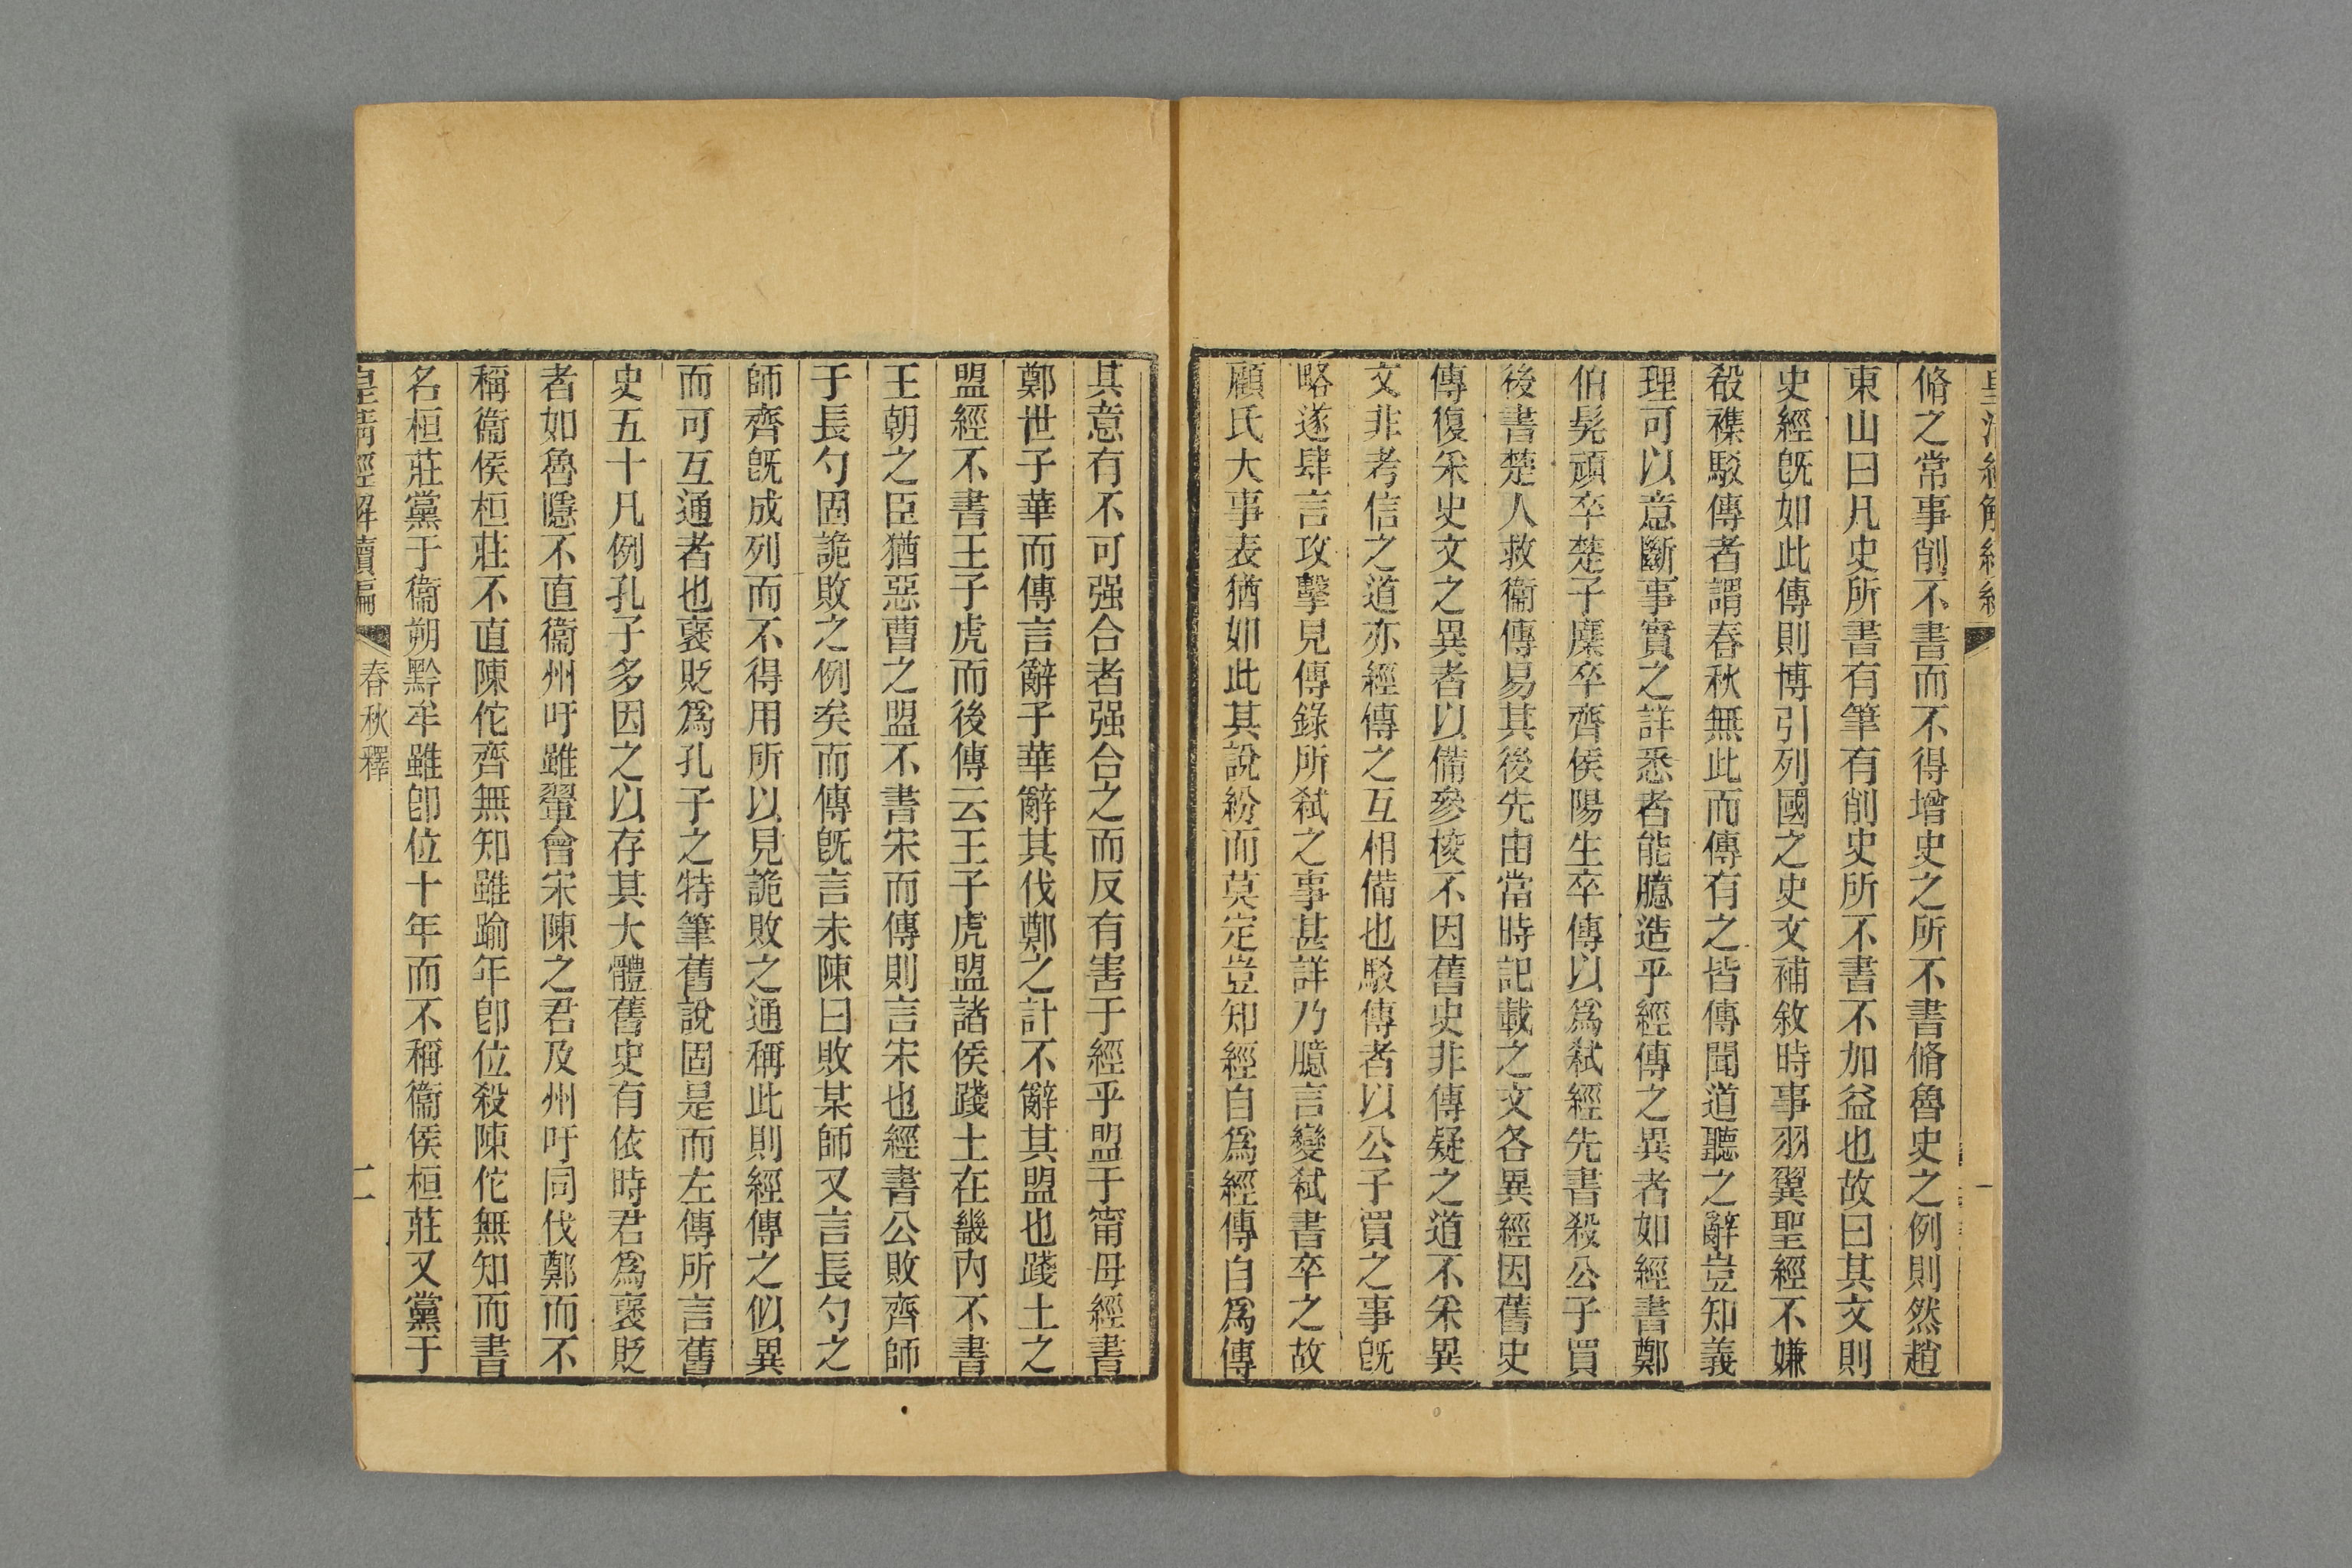 脩之常事削不書而不得增史之所不書脩魯史之例則然趙
東山曰凡史所書有筆有削史所不書不加益也故曰其文則
史經旣如此傳則博引列國之史文補敘時事羽翼聖經不嫌
殽襍駁傳者謂春秋無此而傳有之皆傳聞道聽之辭豈知義
理可以意斷事實之詳悉者能臆造乎經傳之異者如經書鄭
伯髡頑卒楚子麇卒齊侯陽生卒傳以爲弑經先書殺公子買
後書楚人救衞傳易其後先由當時記載之文各異經因舊史
傳復釆史文之異者以備參稜不因舊史非傳疑之道不釆異
文非考信之道亦經傳之互相備也駁傳者以公子買之事旣
略遂肆言攻擊見傳錄所弑之事甚詳乃臆言變弑書卒之故
顧氏大事表猶如此其說紛而莫定豈知經自爲經傳自爲傳
其意有不可强合者强合之而反有害于經乎盟于甯毋經書
鄭世子華而傳言辭子華辭其伐鄭之計不辭其盟也踐土之
盟經不書王子虎而後傳云王子虎盟諸侯踐土在畿内不書
王朝之臣猶惡曹之盟不書宋而傳則言宋也經書公敗齊師
于長勺固詭敗之例矣而傳旣言未陳曰敗某師又言長勺之
師齊旣成列而不得用所以見詭敗之通稱此則經傳之似異
而可互通者也襃貶爲孔子之特筆舊說固是而左傳所言舊
史五十凡例孔子多因之以存其大體舊史有依時君爲襃貶
者如魯隱不直衞州吁雖翬會宋陳之君及州吁同伐鄭而不
稱衞侯桓莊不直陳佗齊無知雖踰年卽位殺陳佗無知而書
名桓莊黨于衞朔黔牟雖卽位十年而不稱衞侯桓莊又黨于
皇清經解續編
春秋釋
二